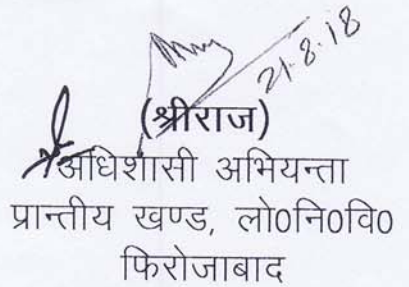 21.8.18
(श्रीराज)
अधिशासी अभियन्ता
प्रान्तीय खण्ड, लो0नि0वि0
फिरोजाबाद